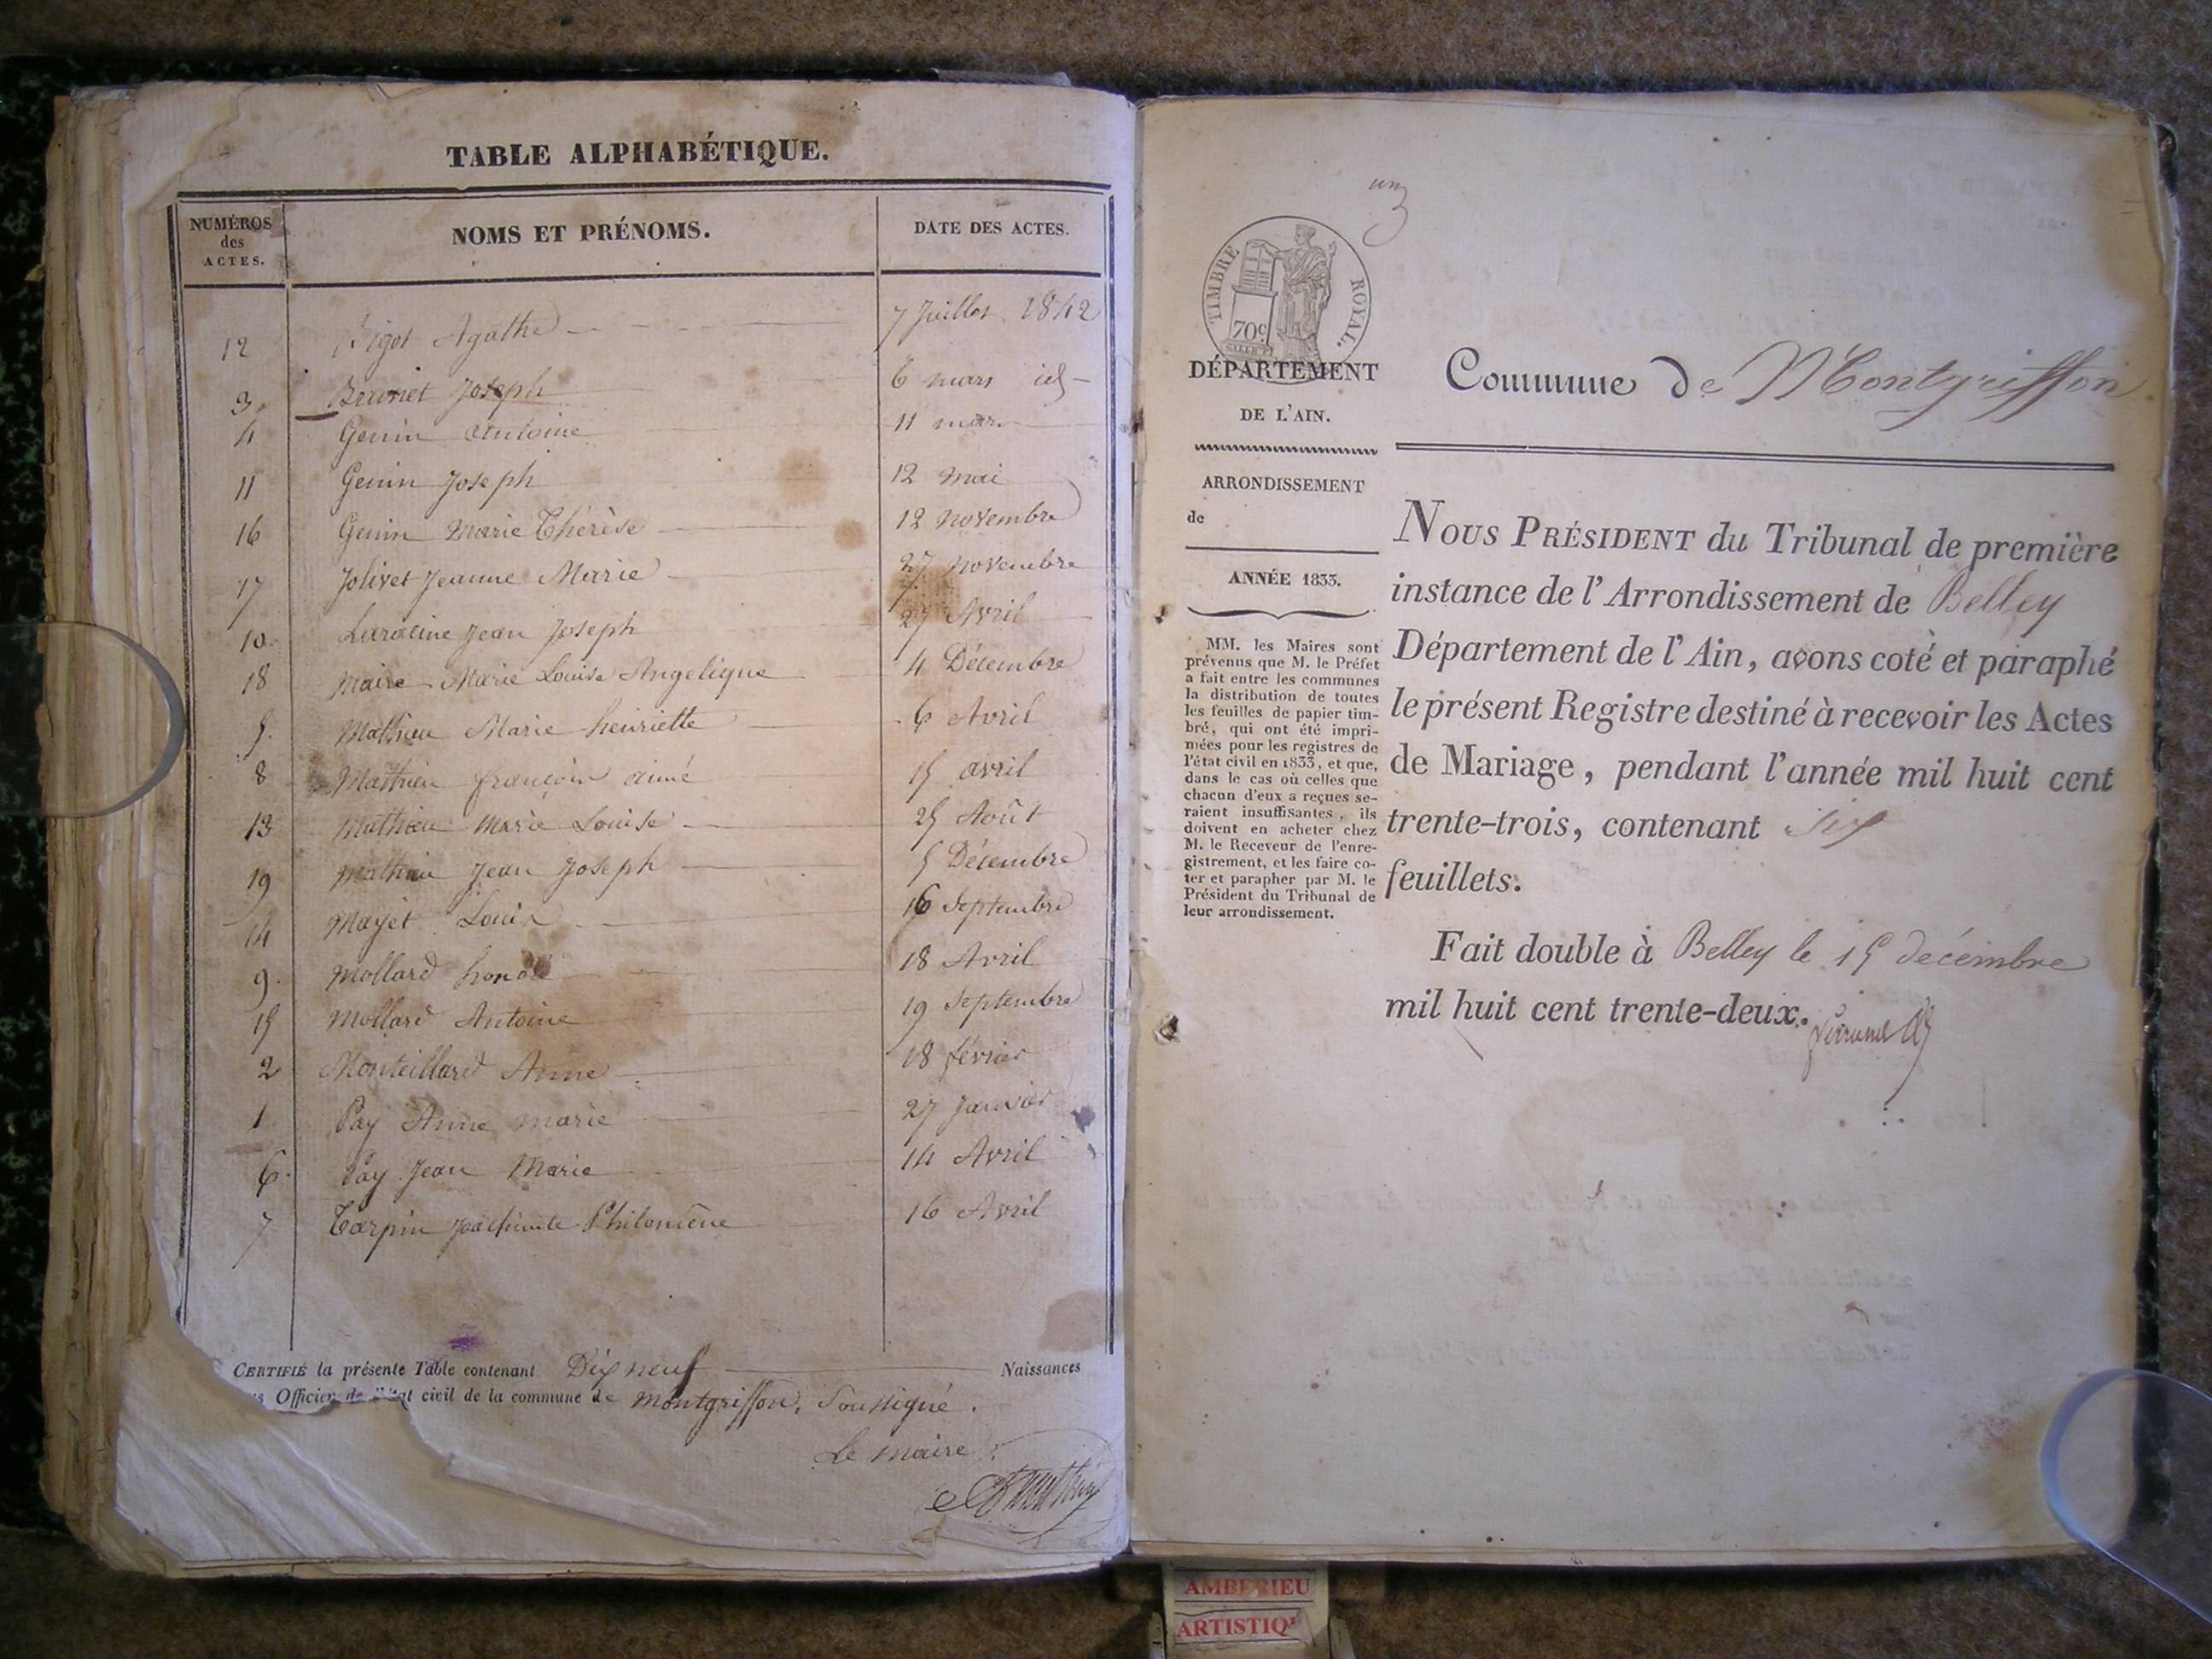 TABLE ALPHABÉTIQUE.
NUMÉROS des ACTES. NOMS ET PRÉNOMS. DATE DES ACTES.
12 Bigot Agathe 7 Juillet 1842
3. Brunet Joseph 6 mars id
4 Genin Antoine 11 mars
11 Genin Joseph 12 mai
16 Genin Marie Thérèse 12 novembre
17 Jolivet Jeanne Marie 27 novembre
10. Laracine Jean Joseph 27 Avril
18 Maire Marie Louise Angelique 4 Décembre
5. Mathieu Marie henriette 6 Avril
8 Mathieu françois aimé 15 avril
13 Mathieu Marie Louise 25 Août
19 Mathieu Jean Joseph 5 Décembre
14 Mayet Louis 16 Septembre
9. Mollard honoré 18 Avril
15 Mollard Antoine 19 Septembre
2 Monteillard Anne 18 février
1 Pay Anne marie 27 Janvier
6. Pay Jean Marie 14 Avril
7 Tarpin Philomène 16 Avril
CERTIFIÉ la présente Table contenant Dix neuf Naissances
Officier de l'état civil de la commune de Montgriffon, Soussigné.
Le maire
un
TIMBRE ROYAL.
70c
DÉPARTEMENT
DE L'AIN.
ARRONDISSEMENT
de
ANNÉE 1833.
MM. les Maires sont
prévenus que M. le Préfet
a fait entre les communes
la distribution de toutes
les feuilles de papier tim-
bré, qui ont été impri-
mées pour les registres de
l'état civil en 1833, et que,
dans le cas où celles que
chacun d'eux a reçues se-
raient insuffisantes, ils
doivent en acheter chez
M. le Receveur de l'enre-
gistrement, et les faire co-
ter et parapher par M. le
Président du Tribunal de
leur arrondissement.
Commune de Montgriffon
NOUS PRÉSIDENT du Tribunal de première
instance de l'Arrondissement de Belley
Département de l'Ain, avons coté et paraphé
le présent Registre destiné à recevoir les Actes
de Mariage, pendant l'année mil huit cent
trente-trois, contenant six
feuillets.
Fait double à Belley le 15 décembre
mil huit cent trente-deux.
AMBERIEU
ARTISTIQU